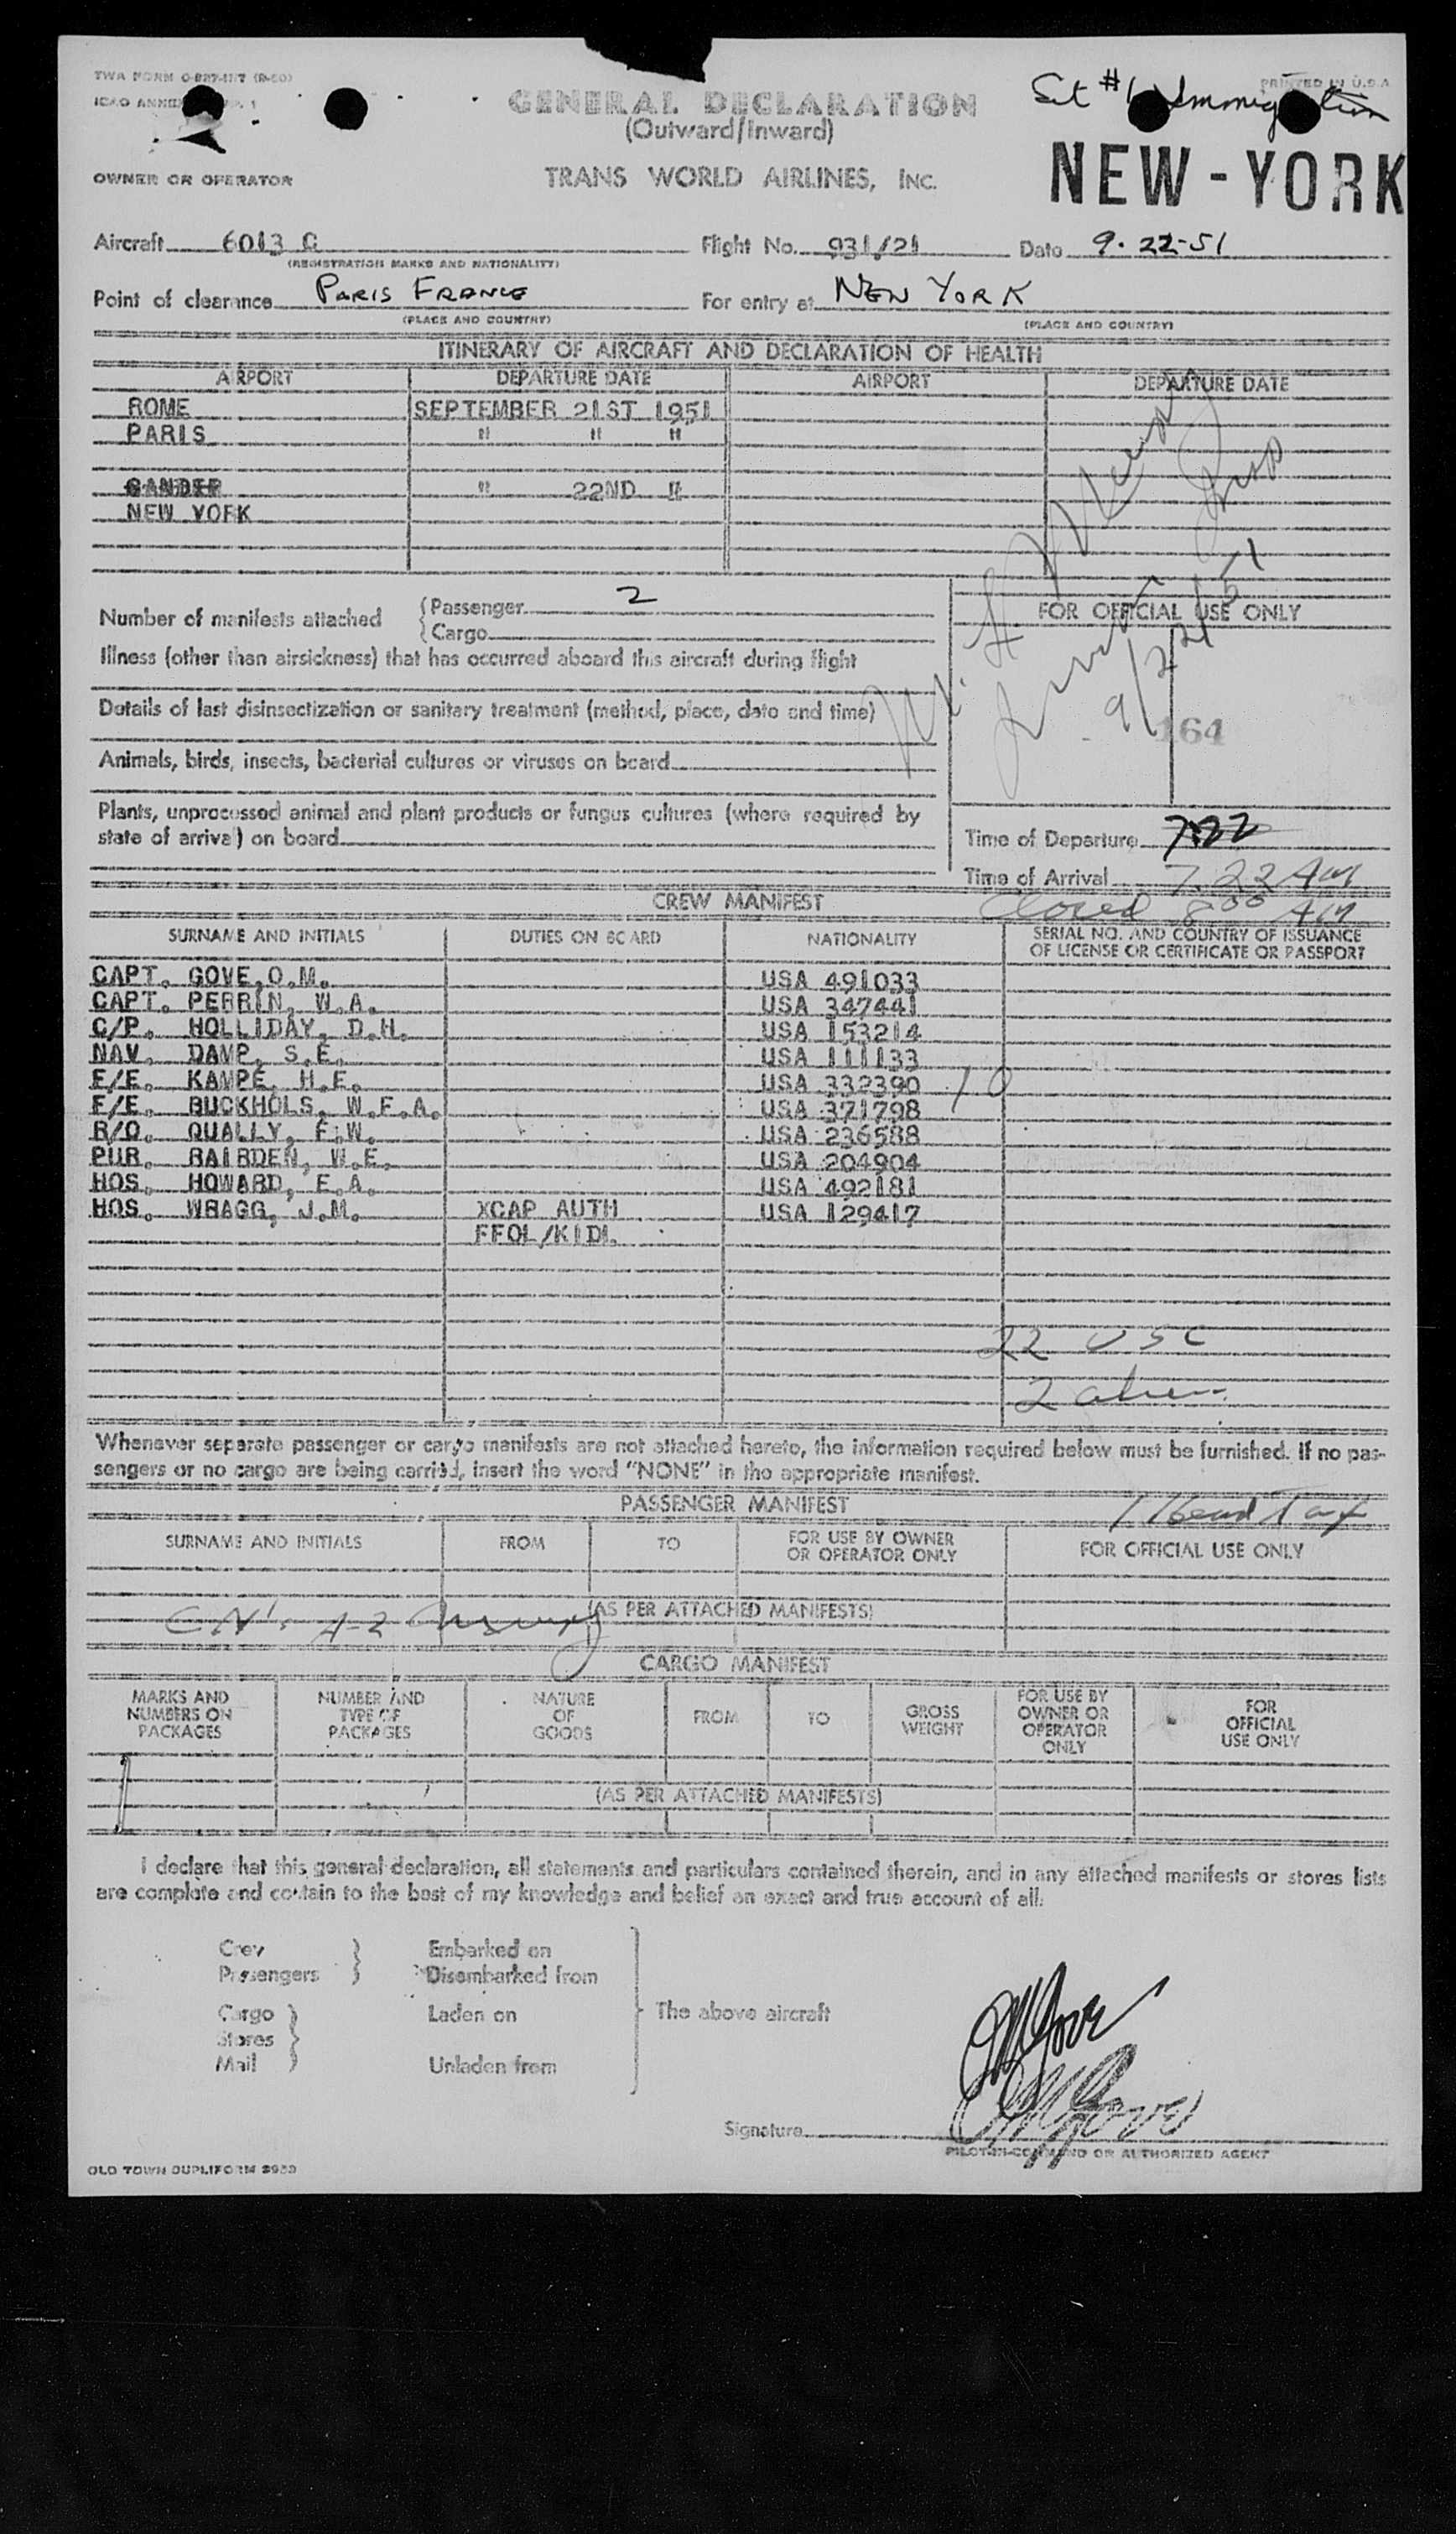 TWA FORM O-827-INT (R-50)
PRINTED IN U.S.A
ICAO ANNEX
Set #1 Immigration
GENERAL DECLARATION
(Outward/Inward)
NEW-YORK
OWNER OR OPERATOR
TRANS WORLD AIRLINES, INC.
Aircraft 6013 C Flight No. 931/21 Date 9-22-51
(REGISTRATION MARKS AND NATIONALITY)
Point of clearance PARIS FRANCE For entry at NEW YORK
(PLACE AND COUNTRY) (PLACE AND COUNTRY)
ITINERARY OF AIRCRAFT AND DECLARATION OF HEALTH
AIRPORT DEPARTURE DATE AIRPORT DEPARTURE DATE
ROME SEPTEMBER 21ST 1951
PARIS " " "
GANDER " 22ND "
NEW YORK
Number of manifests attached {Passenger 2
{Cargo
FOR OFFICIAL USE ONLY
Illness (other than airsickness) that has occurred aboard this aircraft during flight
Details of last disinsectization or sanitary treatment (method, place, date and time)
9/22/51
164
Animals, birds, insects, bacterial cultures or viruses on board
Plants, unprocessed animal and plant products or fungus cultures (where required by
state of arrival) on board
Time of Departure 7:22
Time of Arrival 7.22 AM
Closed 8:00 AM
CREW MANIFEST
SURNAME AND INITIALS DUTIES ON BOARD NATIONALITY SERIAL NO. AND COUNTRY OF ISSUANCE
OF LICENSE OR CERTIFICATE OR PASSPORT
CAPT. GOVE,O.M. USA 491033
CAPT. PERRIN, W.A. USA 347441
C/P. HOLLIDAY, D.H. USA 153214
NAV. DAMP, S.E. USA 111133
F/E. KAMPE, H.E. USA 332390 10
F/E. BUCKHOLS, W.F.A. USA 371798
R/O. QUALLY, F.W. USA 236588
PUR. BAIRDEN, W.E. USA 204904
HOS. HOWARD, E.A. USA 492181
HOS. WRAGG, J.M. XCAP AUTH USA 129417
FFOL/KIDL
22 USC
2 alien
Whenever separate passenger or cargo manifests are not attached hereto, the information required below must be furnished. If no pas-
sengers or no cargo are being carried, insert the word "NONE" in the appropriate manifest.
PASSENGER MANIFEST
1 Head Tax
SURNAME AND INITIALS FROM TO FOR USE BY OWNER
OR OPERATOR ONLY FOR OFFICIAL USE ONLY
(AS PER ATTACHED MANIFESTS)
CARGO MANIFEST
MARKS AND
NUMBERS ON
PACKAGES
NUMBER AND
TYPE OF
PACKAGES
NATURE
OF
GOODS
FROM
TO
GROSS
WEIGHT
FOR USE BY
OWNER OR
OPERATOR
ONLY
FOR
OFFICIAL
USE ONLY
(AS PER ATTACHED MANIFESTS)
I declare that this general declaration, all statements and particulars contained therein, and in any attached manifests or stores lists
are complete and contain to the best of my knowledge and belief an exact and true account of all:
Crew } Embarked on
Passengers } Disembarked from
Cargo } Laden on } The above aircraft
Stores }
Mail } Unladen from
OMGove
OMGove
Signature
PILOT-IN-COMMAND OR AUTHORIZED AGENT
OLD TOWN DUPLIFORM